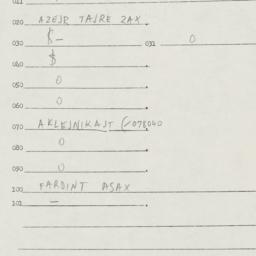 011
020 AZEJR TAJRE ZAX.
030 $— 031 0
040 $
050 0
060 0
070 AKLEJNIKAJT (078040
080 0
090 0
100 FARDINT ASAX
101 —